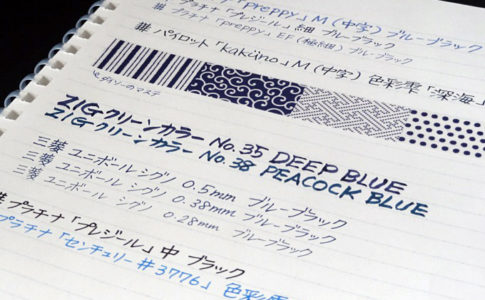 「Preppy」M(中字)ブルーブラック
プラチナ「プレジール」細 ブルーブラック
プラチナ「preppy」EF(極細)ブルーブラック
パイロット「kaküno」M(中字)色彩雫「深海」
ダイソーのマステ
ZIGクリーンカラー No.35 DEEP BLUE
ZIGクリーンカラー No.38 PEACOCK BLUE
三菱 ユニボールシグノ 0.5mm ブルーブラック
三菱 ユニボールシグノ 0.38mm ブルーブラック
三菱 ユニボールシグノ 0.28mm ブルーブラック
プラチナ「プレジール」中 ブラック
プラチナ「センチュリー#3776」色彩雫